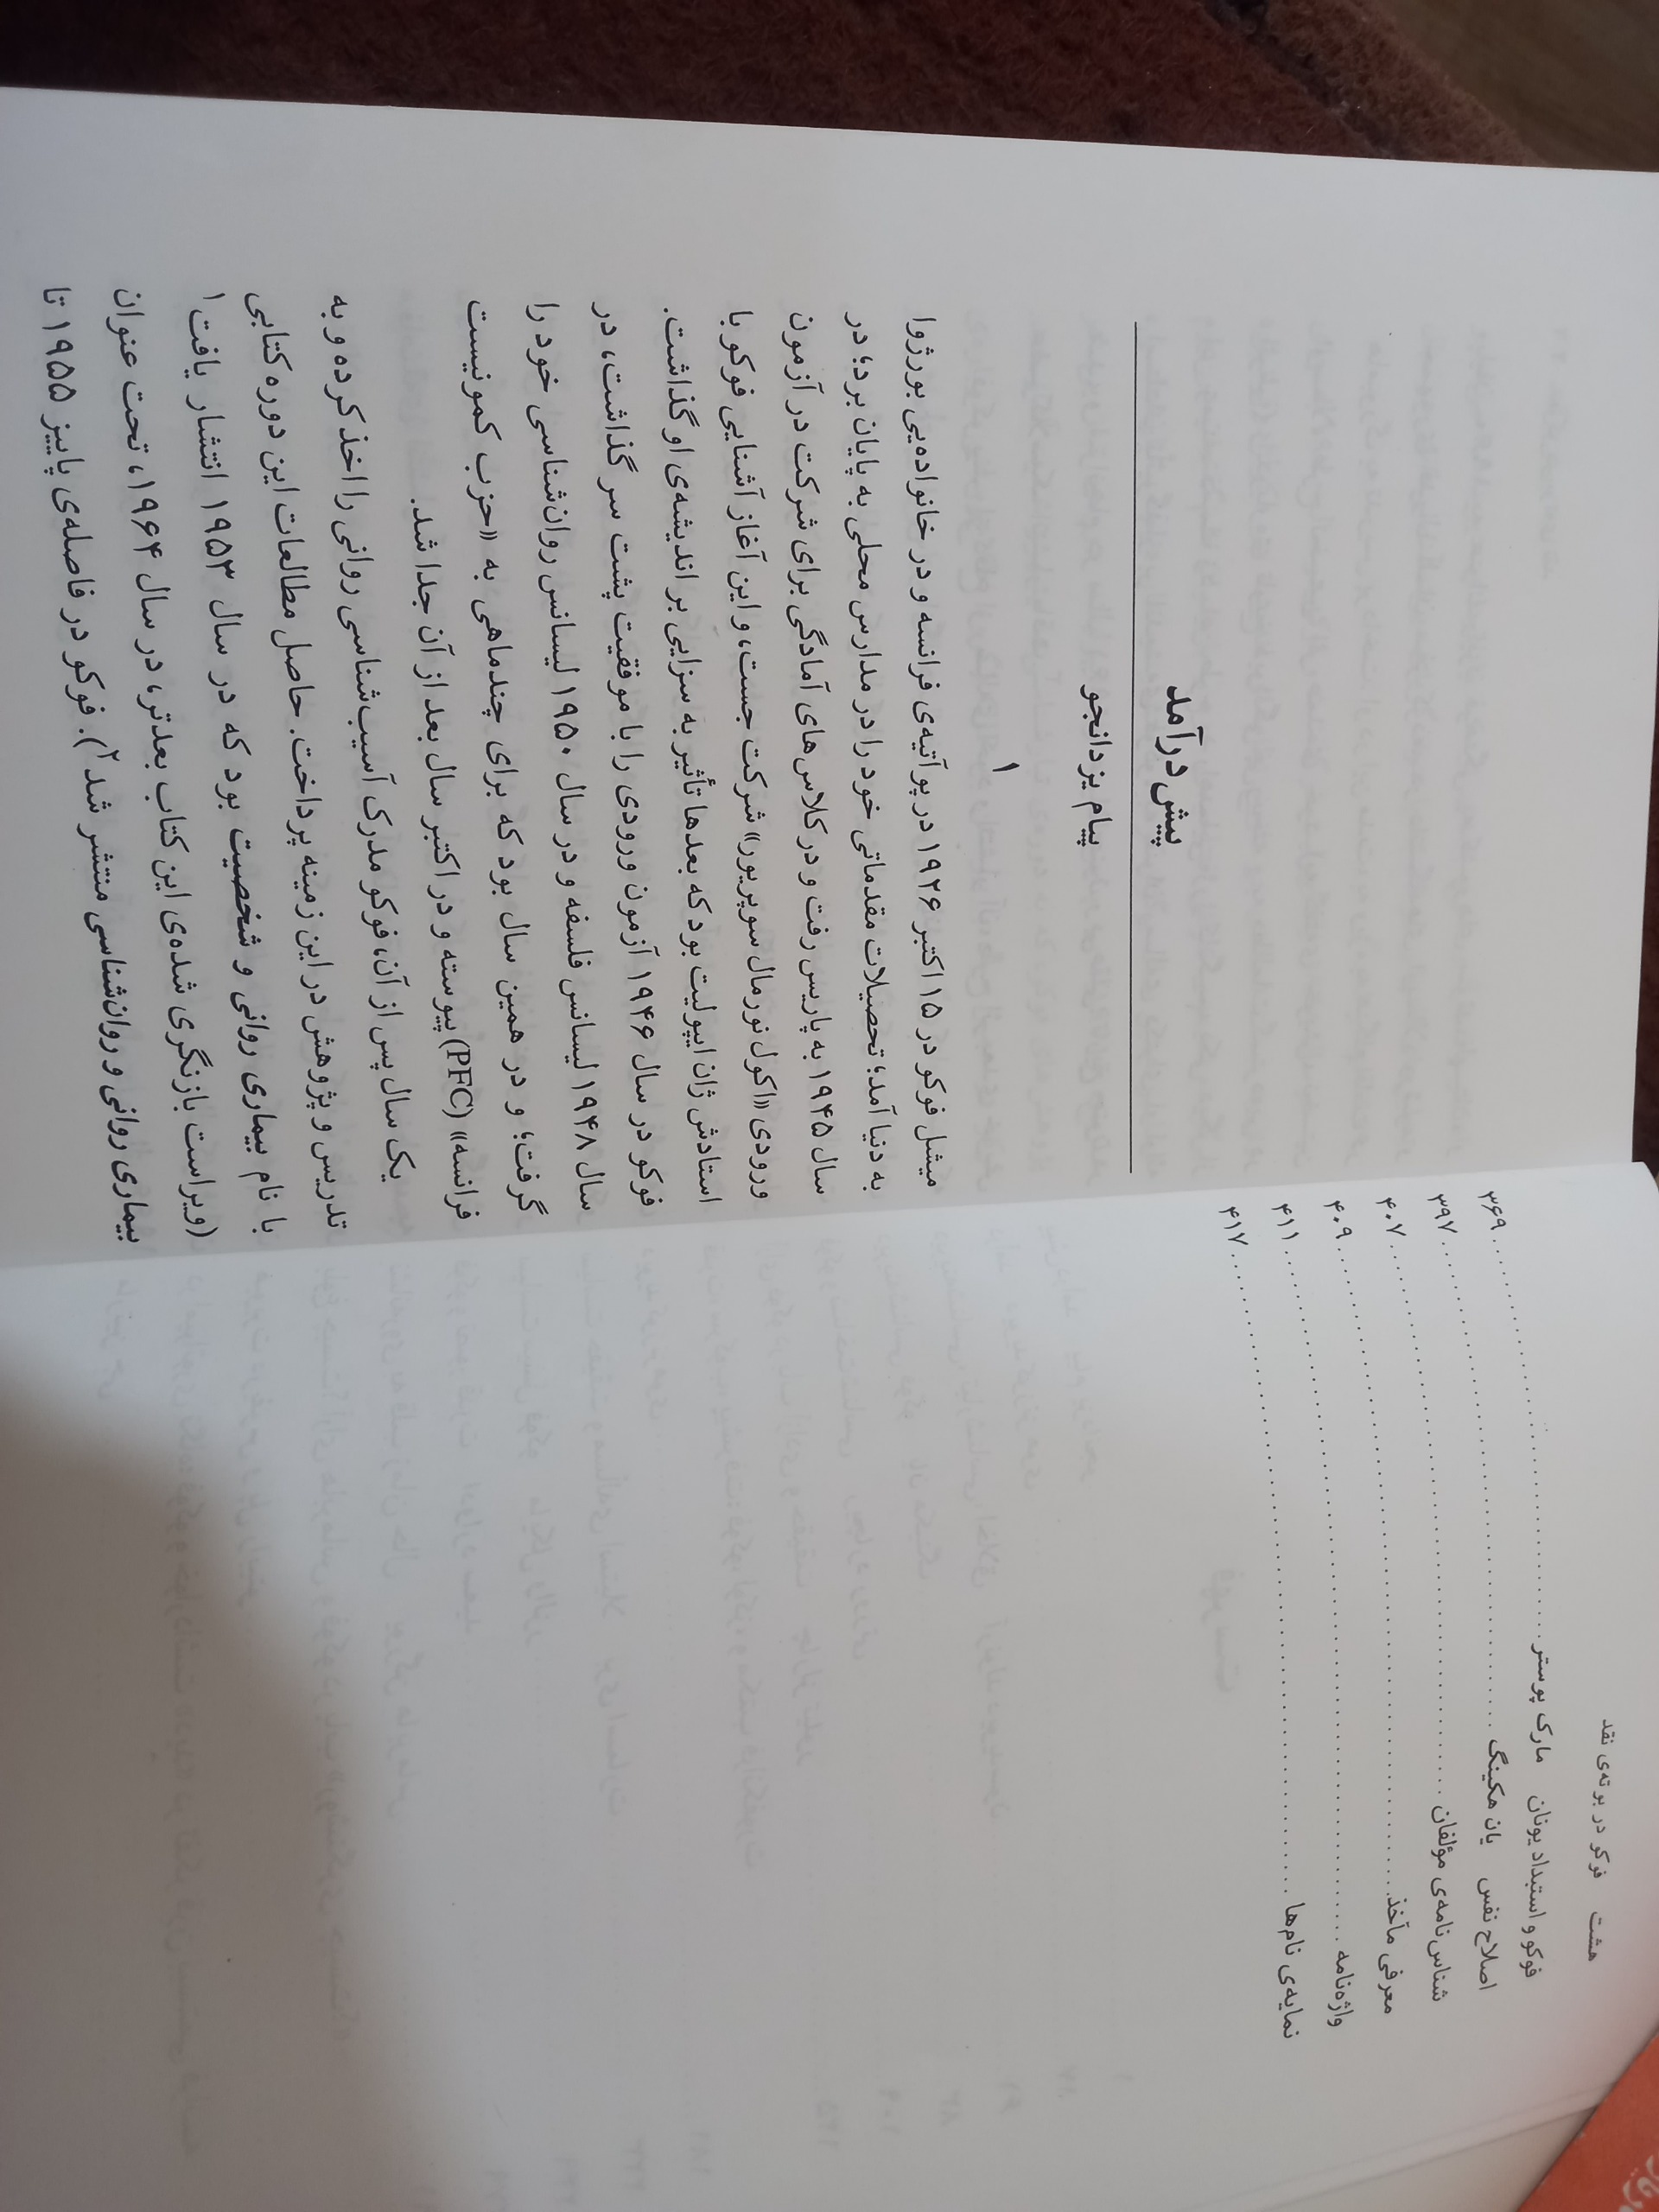 هشت    فوکو در بوته‌ی نقد
فوکو و استبداد یونان    مارک پوستر ........ ۳۶۹
اصلاح نفس    یان هکینگ ........ ۳۹۷
شناس‌نامه‌ی مؤلفان ........ ۴۰۷
معرفی مآخذ ........ ۴۰۹
واژه‌نامه ........ ۴۱۱
نمایه‌ی نام‌ها ........ ۴۱۷
پیش‌درآمد
پیام یزدانجو
۱
میشل فوکو در ۱۵ اکتبر ۱۹۲۶ در پوآتیه‌ی فرانسه و در خانواده‌یی بورژوا
به دنیا آمد؛ تحصیلات مقدماتی خود را در مدارس محلی به پایان برد؛ در
سال ۱۹۴۵ به پاریس رفت و در کلاس‌های آمادگی برای شرکت در آزمون
ورودی «اکول نورمال سوپریور» شرکت جست، و این آغاز آشنایی فوکو با
استادش ژان ایپولیت بود که بعدها تأثیر به سزایی بر اندیشه‌ی او گذاشت.
فوکو در سال ۱۹۴۶ آزمون ورودی را با موفقیت پشت سر گذاشت، در
سال ۱۹۴۸ لیسانس فلسفه و در سال ۱۹۵۰ لیسانس روان‌شناسی خود را
گرفت؛ و در همین سال بود که برای چندماهی به «حزب کمونیست
فرانسه» (PFC) پیوسته و در اکتبر سال بعد از آن جدا شد.
یک سال پس از آن، فوکو مدرک آسیب‌شناسی روانی را اخذ کرده و به
تدریس و پژوهش در این زمینه پرداخت. حاصل مطالعات این دوره کتابی
با نام بیماری روانی و شخصیت بود که در سال ۱۹۵۳ انتشار یافت۱
(ویراست بازنگری شده‌ی این کتاب بعدتر، در سال ۱۹۶۴، تحت عنوان
بیماری روانی و روان‌شناسی منتشر شد۲). فوکو در فاصله‌ی پاییز ۱۹۵۵ تا